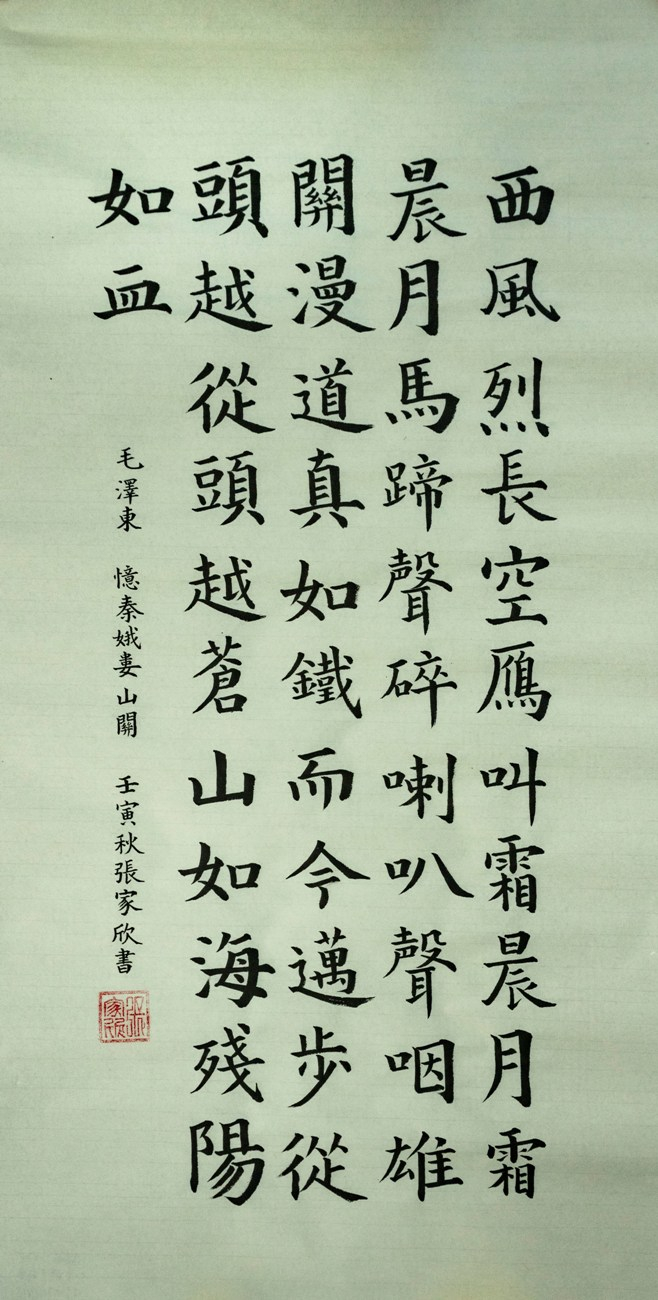 西風烈長空鴈叫霜晨月霜
晨月馬蹄聲碎喇叭聲咽雄
關漫道真如鐵而今邁步從
頭越從頭越蒼山如海殘陽
如血
毛澤東 憶秦娥婁山關 壬寅秋張家欣書
張家欣